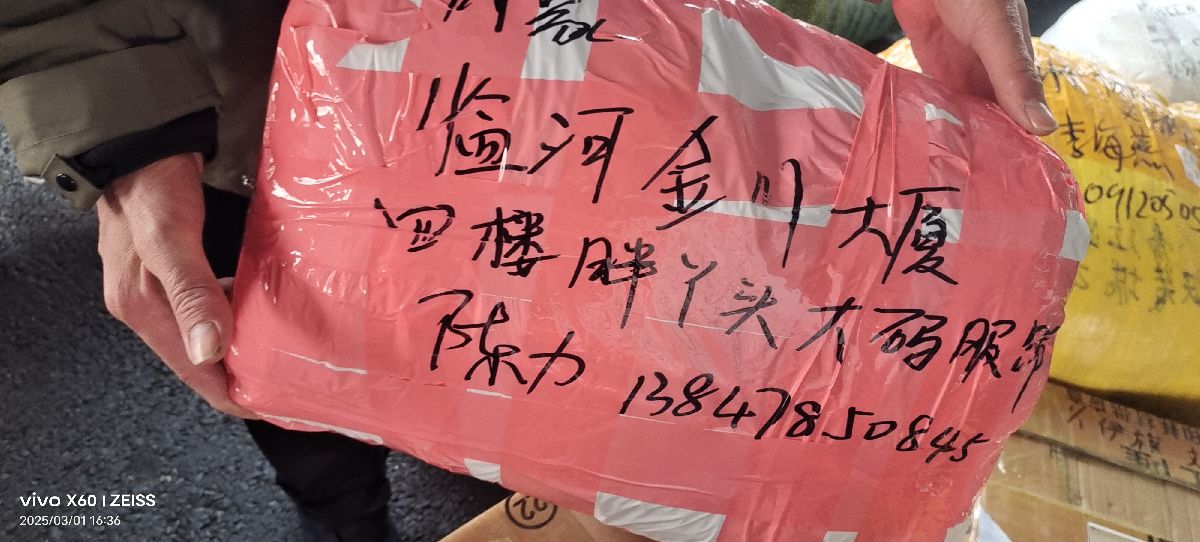 监河金川大厦
四楼胖丫头大码服饰
陈力 13847850845
青海燕
0912050
22
vivo X60 | ZEISS
2025/03/01 16:36